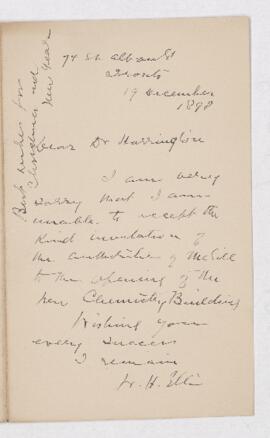 74 St Albans St
Toronto
19 December
1898
Dear Dr Harrington
I am very
sorry that I am
unable to accept the
kind invitation of
the authorities of McGill
to the opening of the
new Chemistry Building
Wishing you
every success
I remain
W. H. Ellis
Best wishes for
Christmas and
New Year